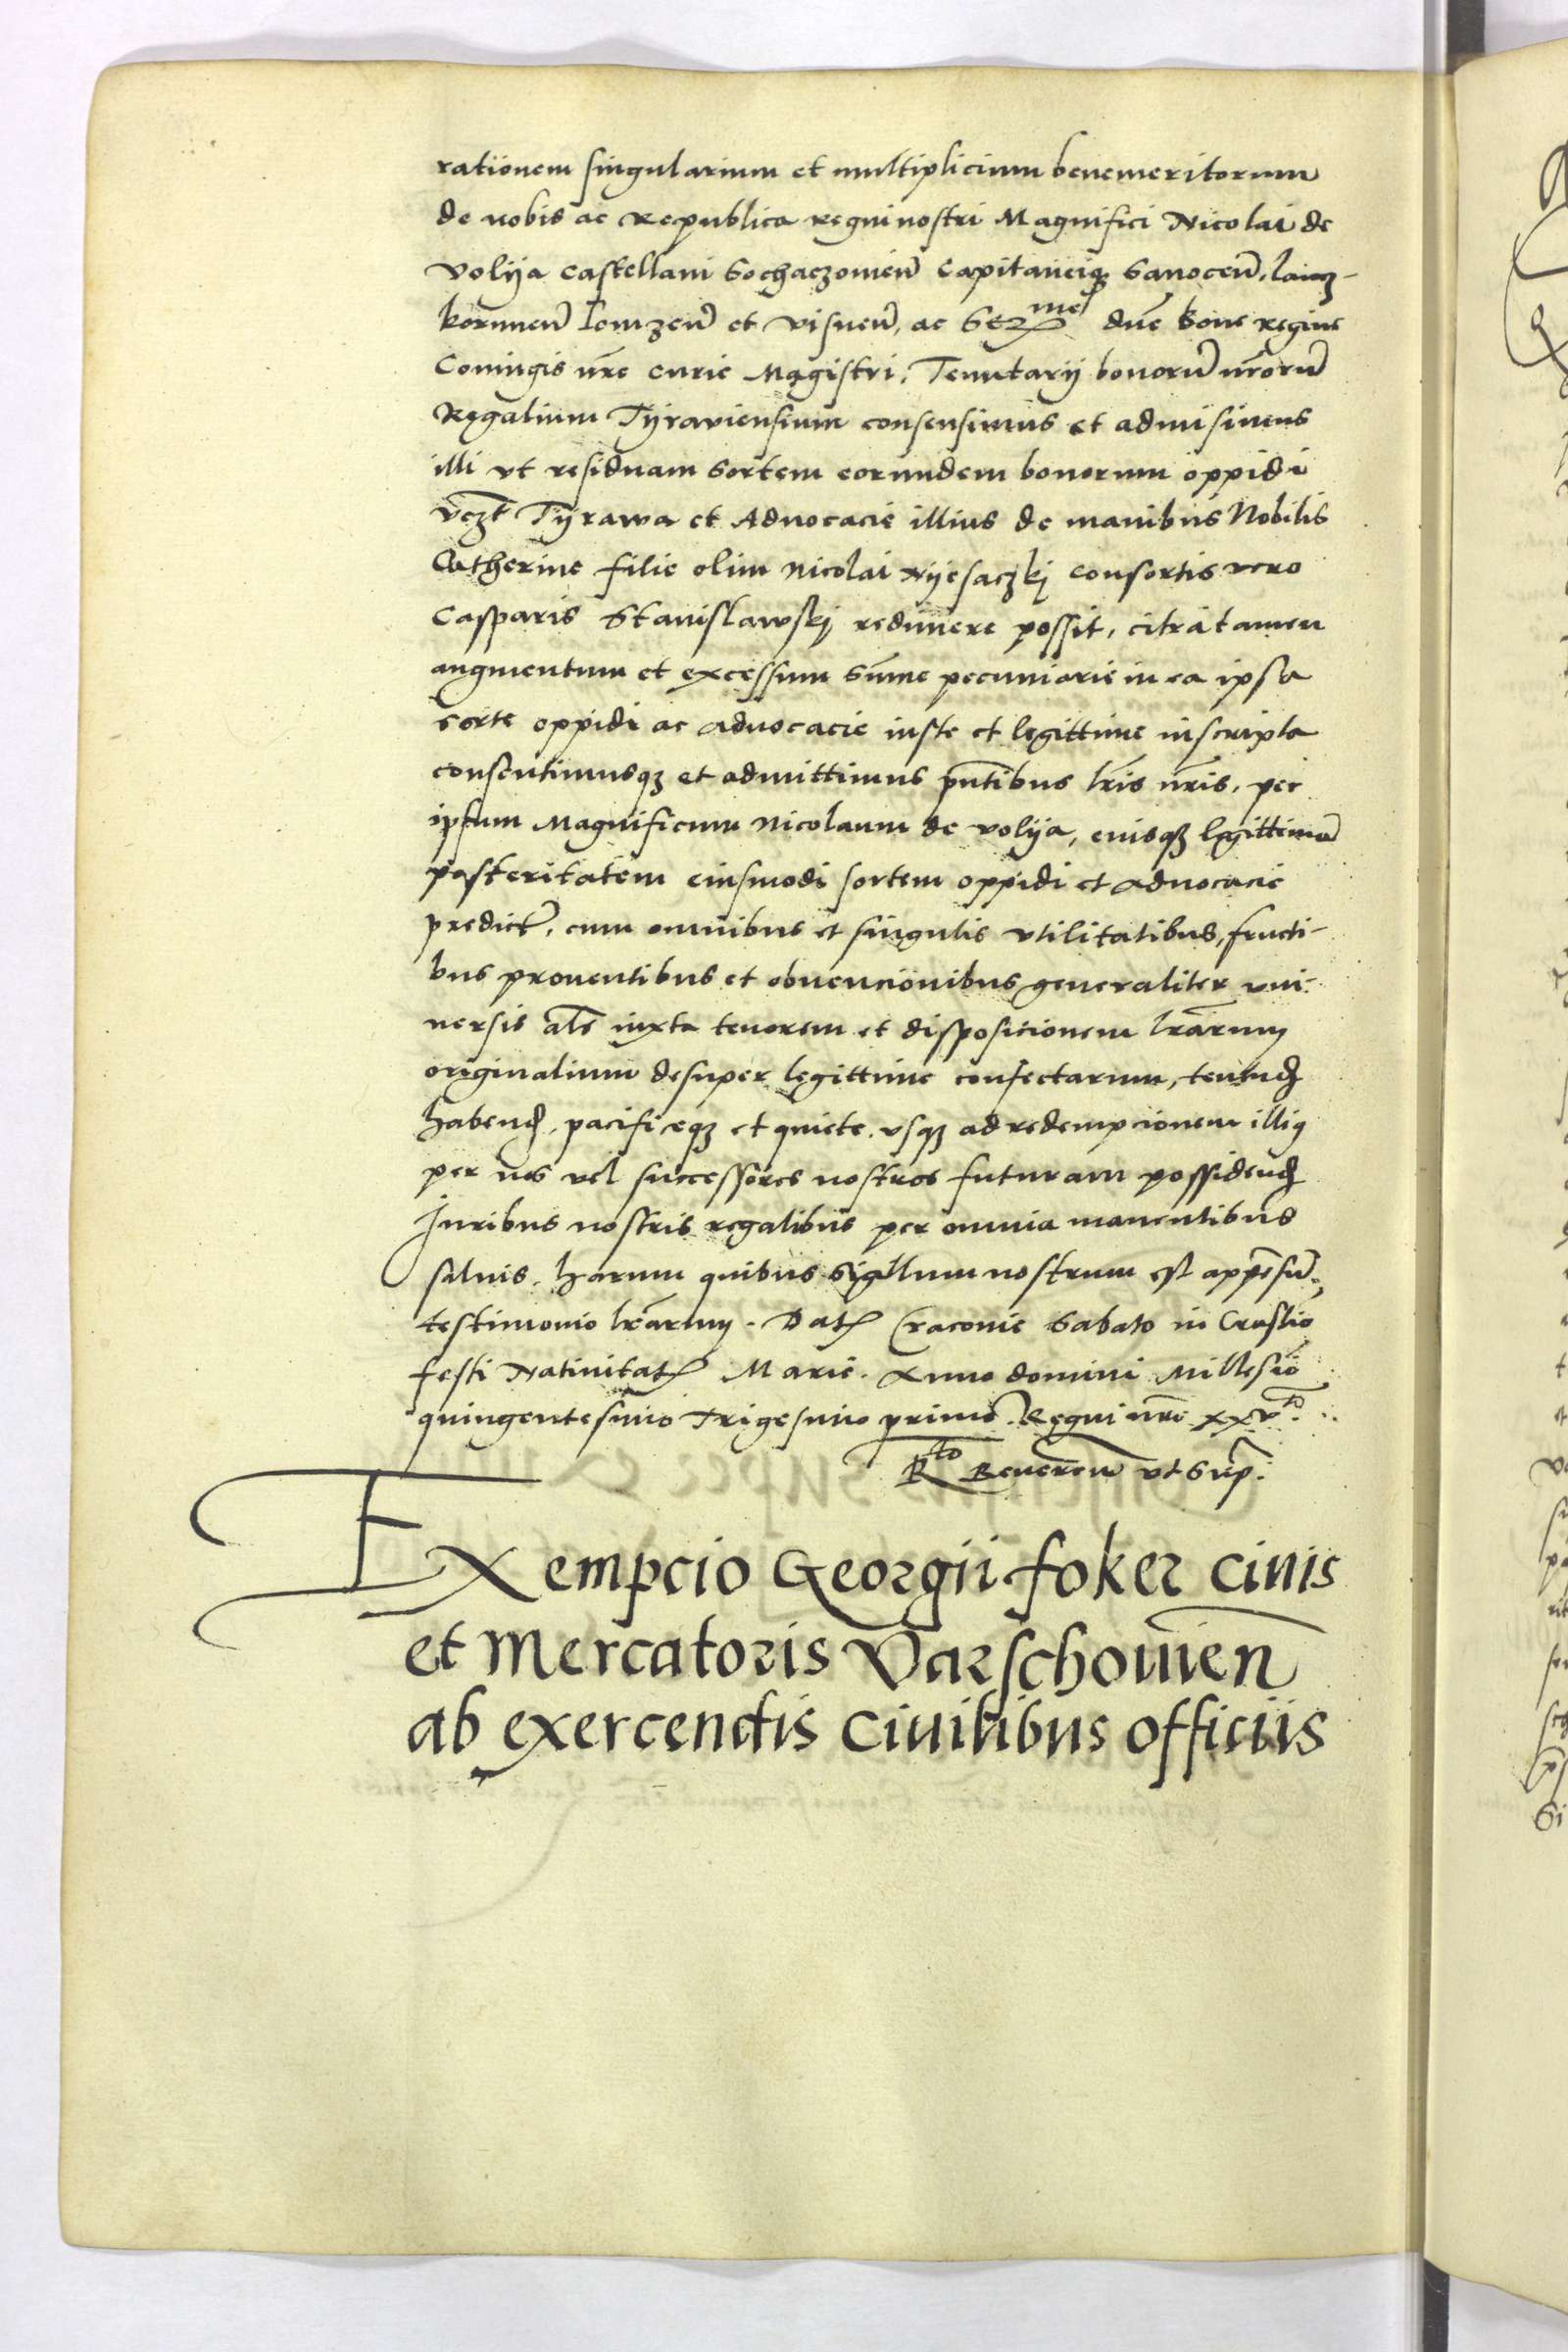 rationem singularium et multiplicium benemeritorum
de nobis ac Republica regni nostri Magnifici Nicolai de
Volija Castellani Sochaczouien̄ Capitaneiqꝫ Sanocen̄, lancz-
korunen̄ Lomzen̄ et Visnen̄, ac Serᵐᵉ dn̄e Bone regine
Coniugis nr̄e curie Magistri, Tenutarij bonorū nr̄orū
Regalium Tÿrauiensium consensimus et admisimus
illi vt residuam sortem eorundem bonorum oppidi
vczt̄ Tÿrawa et Aduocacie illius de manibus Nobilis
Catherine filie olim Nicolai Nÿesaczkj consortis vero
Casparis Stanislawskj redimere possit, citra tamen
augmentum et excessum sum̄e pecuniarie in ea ipsa
sorte oppidi ac aduocacie iuste et legittime inscripta
consentimusqꝫ et admittimus pn̄tibus lr̄is nr̄is, per
ipsum Magnificum Nicolaum de Volija, eiusqꝫ legittimā
posteritatem eiusmodi sortem oppidi et aduocacie
predict̄, cum omnibus et singulis vtilitatibus, fructi-
bus prouentibus et obuencionibus generaliter vni-
uersis al̄s iuxta tenorem et disposicionem lr̄arum
originalium desuper legittime confectarum, tenend̄
habend̄, pacificeqꝫ et quiete, vsqꝫ ad redempcionem illiꝰ
per nos vel successores nostros futuram possidend̄
Juribus nostris regalibus per omnia manentibus
saluis, harum quibus Sigillum nostrum est appēsū,
testimonio lr̄arum. Datꝭ Cracouie Sabato in Crastīo
festi Natiuitatꝭ Marie. Anno domini Millesiō
quingentesimo Trigesimo primo. Regni nr̄i xxvᵗᵒ.
Rᵗᵒ Reueren̄ vt Sup̄.
EXempcio Georgii foker ciuis
et Mercatoris Varschouien̄
ab exercendis ciuilibus officiis